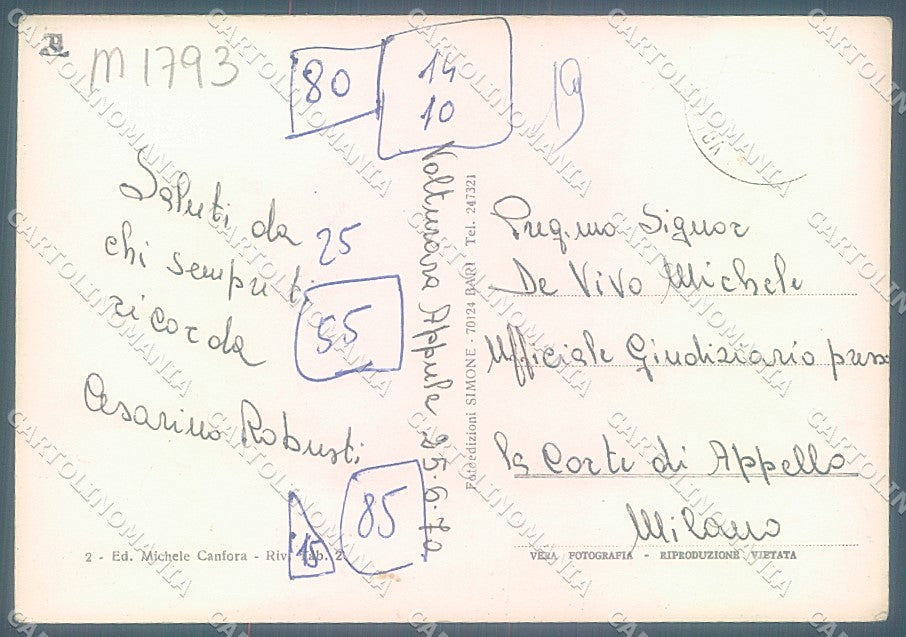 M 1793
80
14
10
19
Saluti da
chi sempre ti
ricorda
Cesarino Robusti
25
55
85
15
Volturara Appula 25.6.70
Fotoedizioni SIMONE - 70124 BARI Tel. 247321
Preg.mo Signor
De Vivo Michele
Ufficiale Giudiziario presso
la Corte di Appello
Milano
2 - Ed. Michele Canfora - Riv. Tab. 2
VERA FOTOGRAFIA - RIPRODUZIONE VIETATA
CARTOLINOMANIA